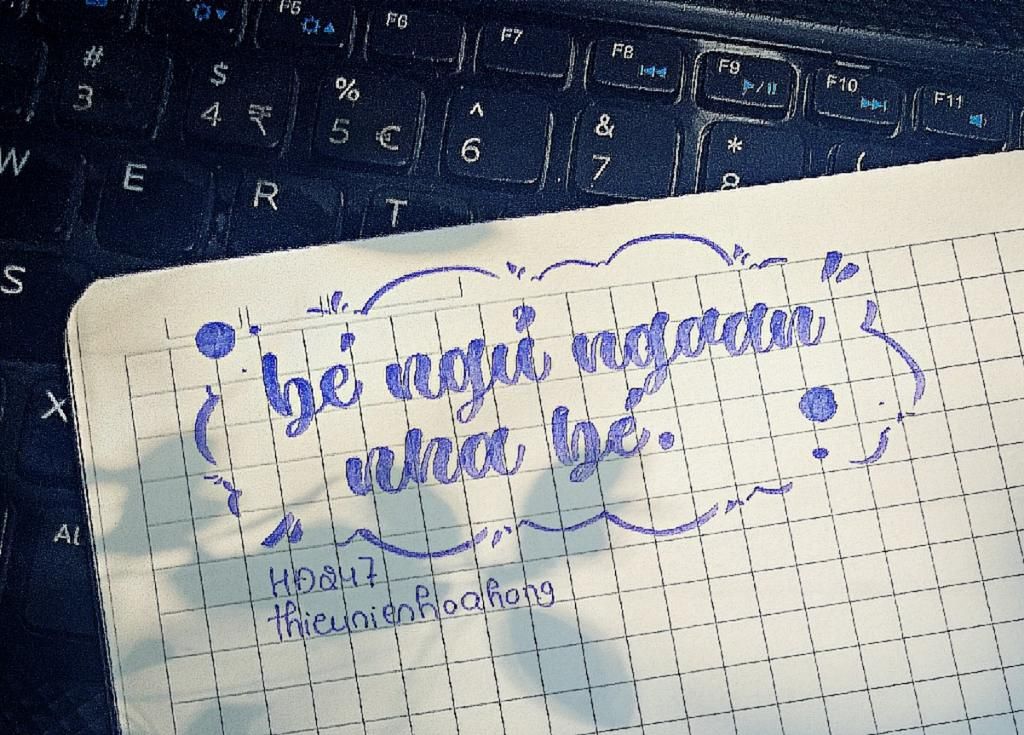 F5
F6
F7
F8
F9
F10
F11
#
3
$
4 ₹
%
5 €
^
6
&
7
*
8
(
W
E
R
T
S
X
bé ngủ ngoan
nha bé.
HĐ247
thieunienhoahong